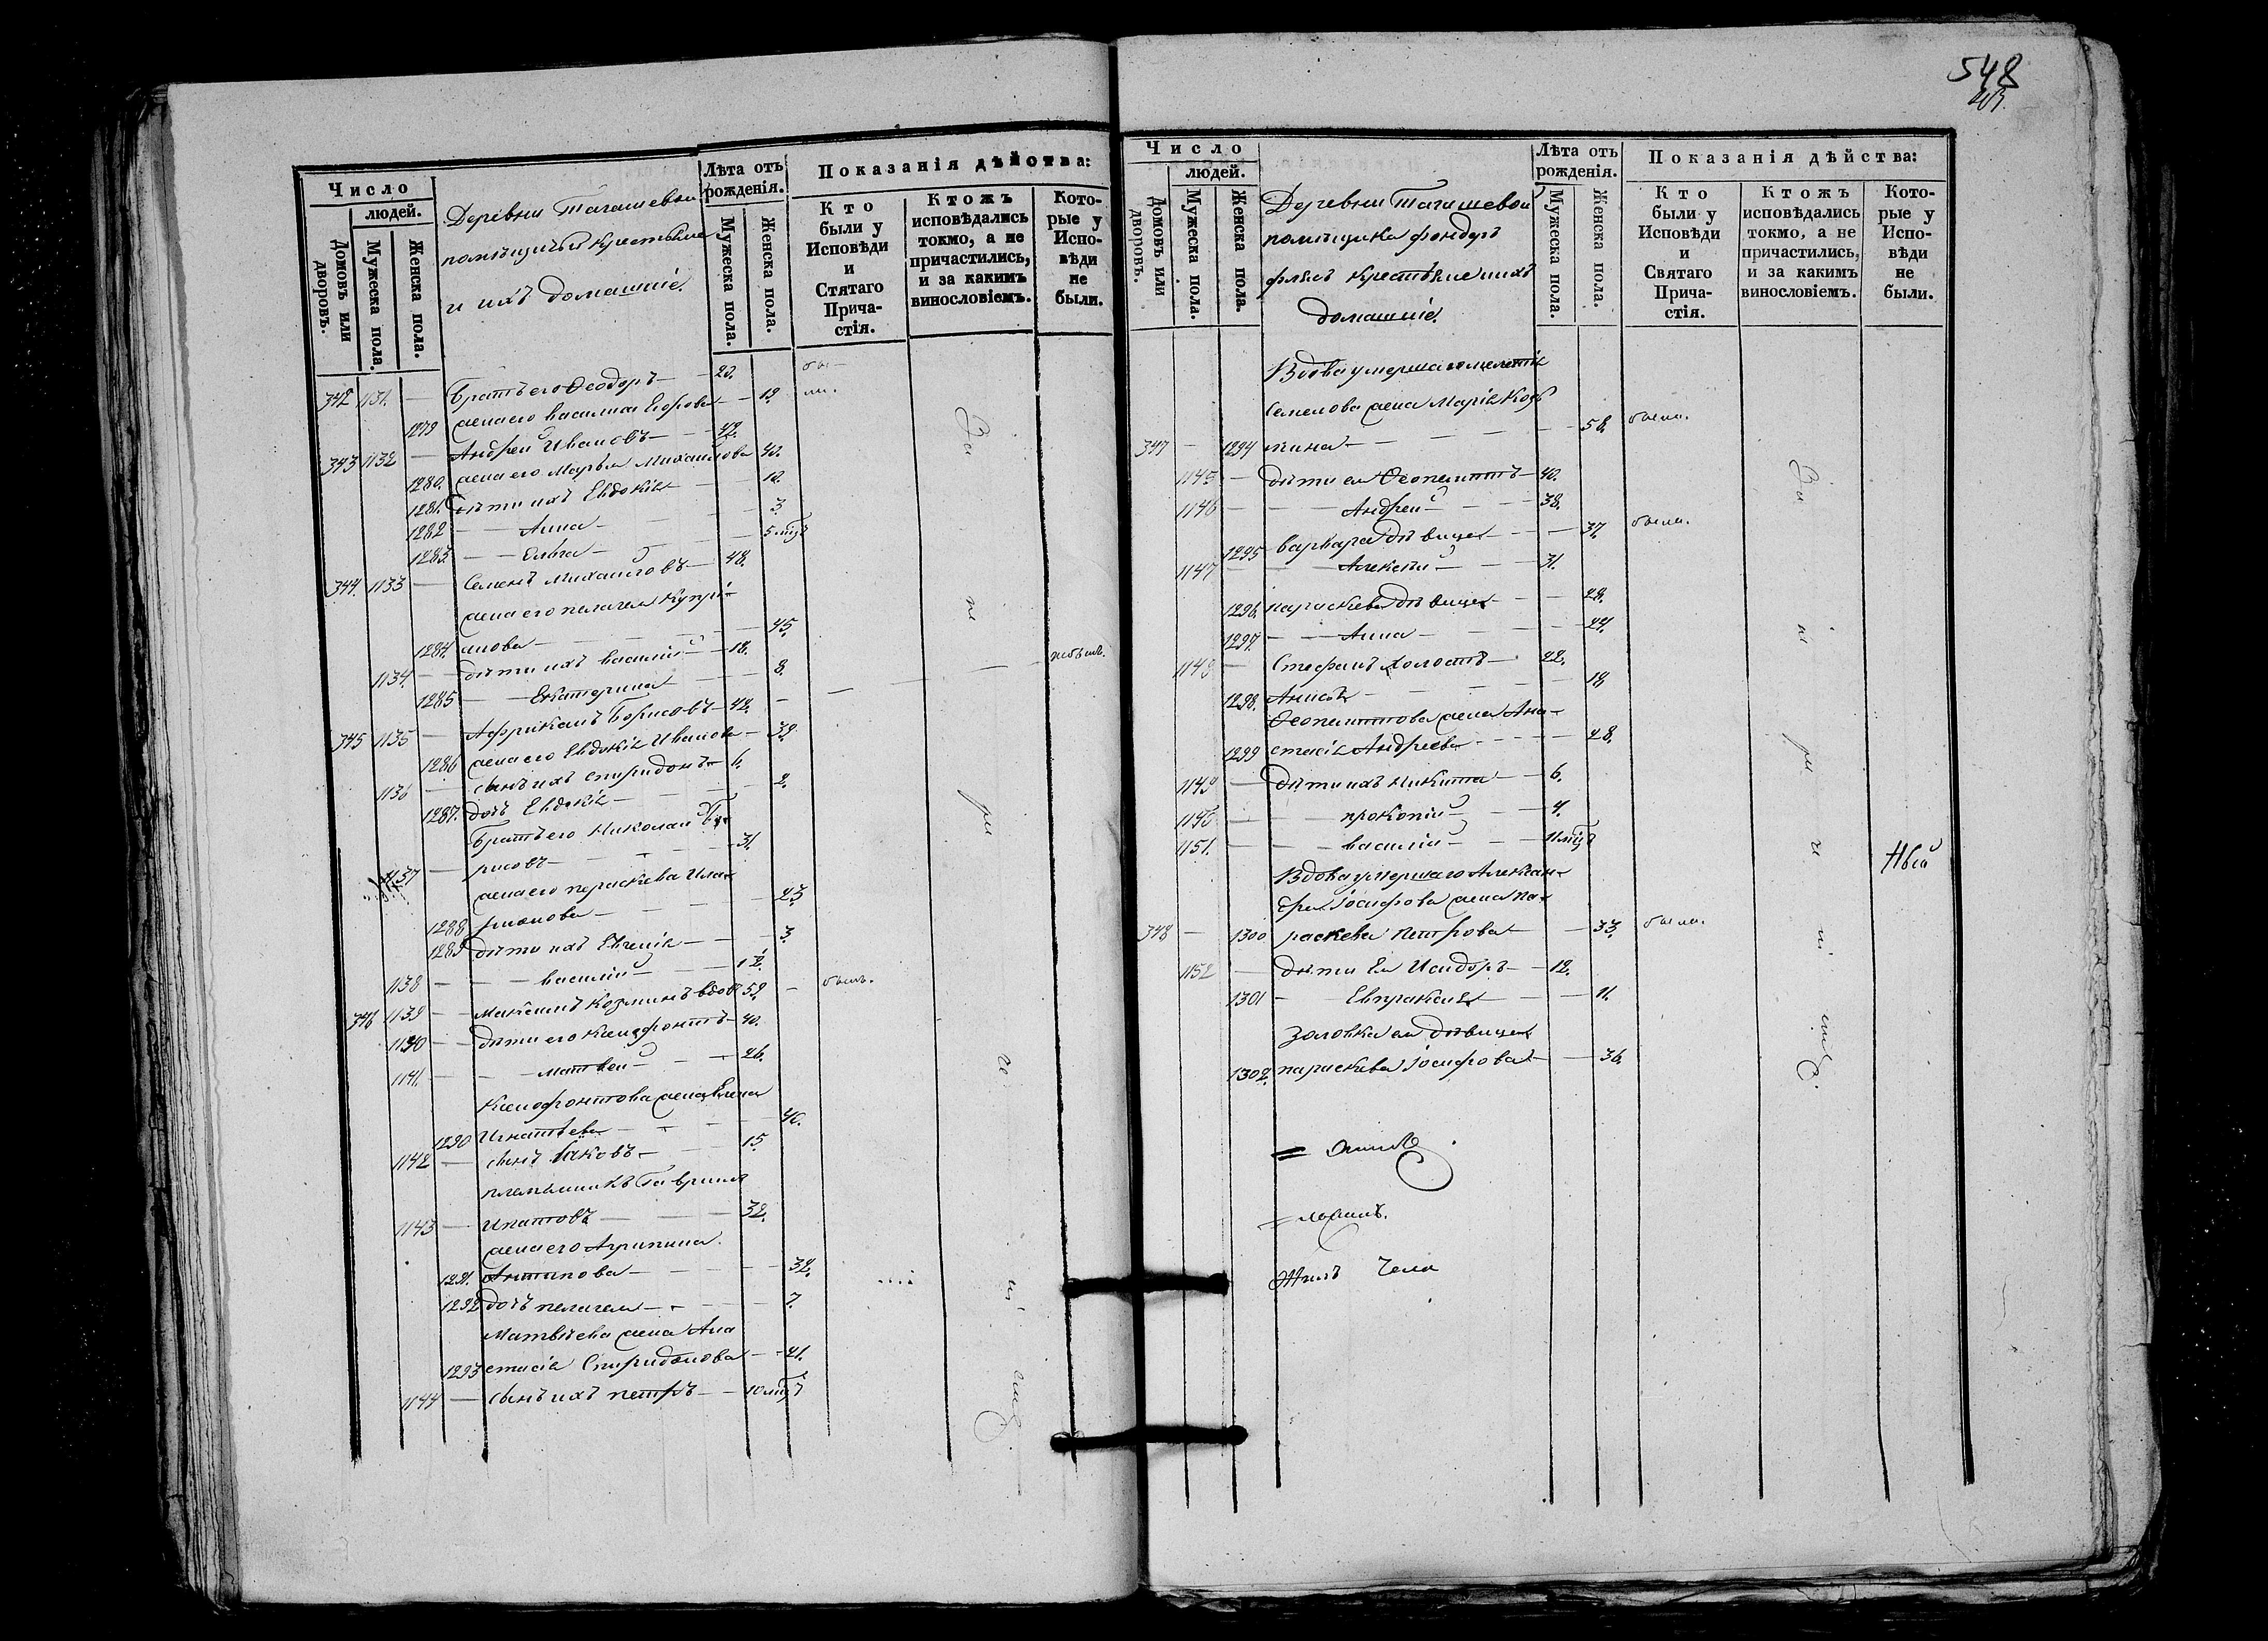 Число
людей.
Домовъ или дворовъ.
Мужеска пола.
Женска пола.
Деревни Тагашевой
помѣщичьи крестьяне
и ихъ домашніе
Лѣта отъ рожденія.
Мужеска пола.
Женска пола.
Показанія дѣйства:
Кто были у Исповѣди и Стятаго Прича-стія.
Ктожъ исповѣдались токмо, а не причастились, и за какимъ винословіемъ.
Кото-рые у Испо-вѣди не были.
342 1131. — Братъ его Ѳеодоръ — 20. бы-
1279 жена его Василиса Егорова — 19. ли.
343 1132 — Андрей Ивановъ — 42.
1280. жена его Марья Михайлова 40.
1281. дѣти ихъ Евдокія — 10.
1282 — Анна — 3.
1283. — Ольга — 5 мцъ
344. 1133 — Семенъ Михайловъ — 48.
жена его Пелагея Купрі-
1284. янова — 45.
1134. — дѣти ихъ Василій — 18.
1285 — Екатерина — 8.
345 1135 — Африканъ Борисовъ — 42. —
1286 жена его Евдокія Иванова — 39.
1136 — сынъ ихъ Спиридонъ — 6.
1287. дочь Евдокія — 2.
Братъ его Николай Бо-
1137 — рисовъ — 31.
жена его Параскева Илла-
1288 ріонова — 23
1289 дѣти ихъ Евгенія — 3.
1138 — Василій — 1½.
346 1139 — Максимъ Козминъ вдовъ 59. — былъ.
1140 — дѣти его Ксенофонтъ — 40.
1141. — Матвей — 26.
Ксенофонтова жена Елена
1290 Игнатьева — 40.
1142 — сынъ Іаковъ — 15.
племянникъ Гаврила
1143 — Ипатовъ — 32.
жена его Агрипина
1291. Антипова — 32.
1292 дочь Пелагея — 7.
Матвѣева жена Ана
1293 стасія Спиридонова — 21.
1144 — сынъ ихъ Петръ — 10 мцъ
548
Число
людей.
Домовъ или дворовъ.
Мужеска пола.
Женска пола.
Деревни Тагашевой
помѣщика фондеръ
флясъ крестьяне ихъ
домашніе.
Лѣта отъ рожденія.
Мужеска пола.
Женска пола.
Показанія дѣйства:
Кто были у Исповѣди и Святаго Прича-стія.
Ктожъ исповѣдались токмо, а не причастились, и за какимъ винословіемъ.
Кото-рые у Испо-вѣди не были.
Вдова умершаго Мелетія
Семенова жена Марія Козь
347 — 1294 мина — 58. была.
1145 — дѣти ея Ѳеопемптъ — 40.
1146 — Андрей — 38.
1295 Варвара дѣвица — 37. была.
1147 — Алексѣй — 31.
1296. Параскева дѣвица — 28.
1297. — Анна — 24.
1148 — Стефанъ холостъ — 22.
1298. Анисія — 18
Ѳеопемптова жена Ана-
1299 стасія Андреева — 28.
1149 — дѣти ихъ Никита — 6.
1150 — Прокопій — 4.
1151. — Василій — 11 мцъ
Вдова умершаго Алексан-
дра Іосифова жена Па-
348 — 1300 раскева Петрова — 33. была.
1152 — дѣти ея Исидоръ — 12.
1301 — Евпраксія — 11.
Золовка ея дѣвица
1302. Параскева Іосифова — 36.